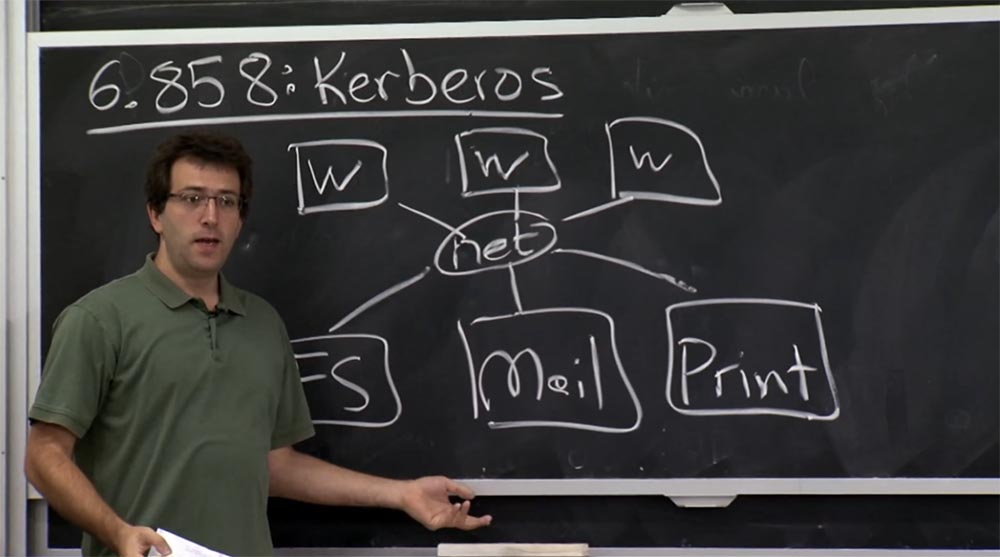 6.858: Kerberos
W W W
net
FS Mail Print